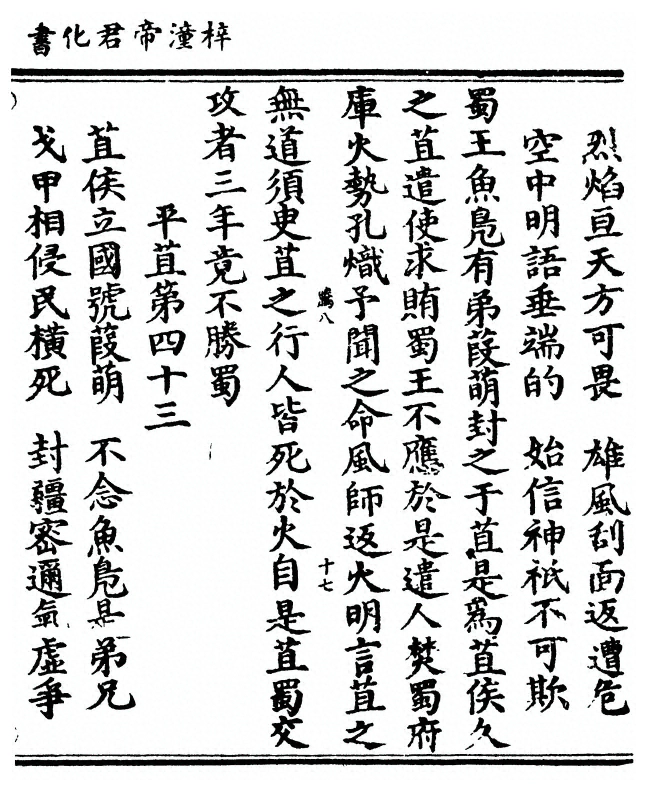 梓潼帝君化書
烈焰亘天方可畏　雄風刮面返遭危
空中明語垂端的　始信神祇不可欺
蜀王魚鳧有弟葭萌封之于苴是爲苴侯久
之苴遣使求賄蜀王不應於是遣人焚蜀府
庫火勢孔熾予聞之命風師返火明言苴之
騰八　十七
無道須臾苴之行人皆死於火自是苴蜀交
攻者三年竟不勝蜀
平苴第四十三
苴侯立國號葭萌　不念魚鳧是弟兄
戈甲相侵民橫死　封疆密邇氣虛爭